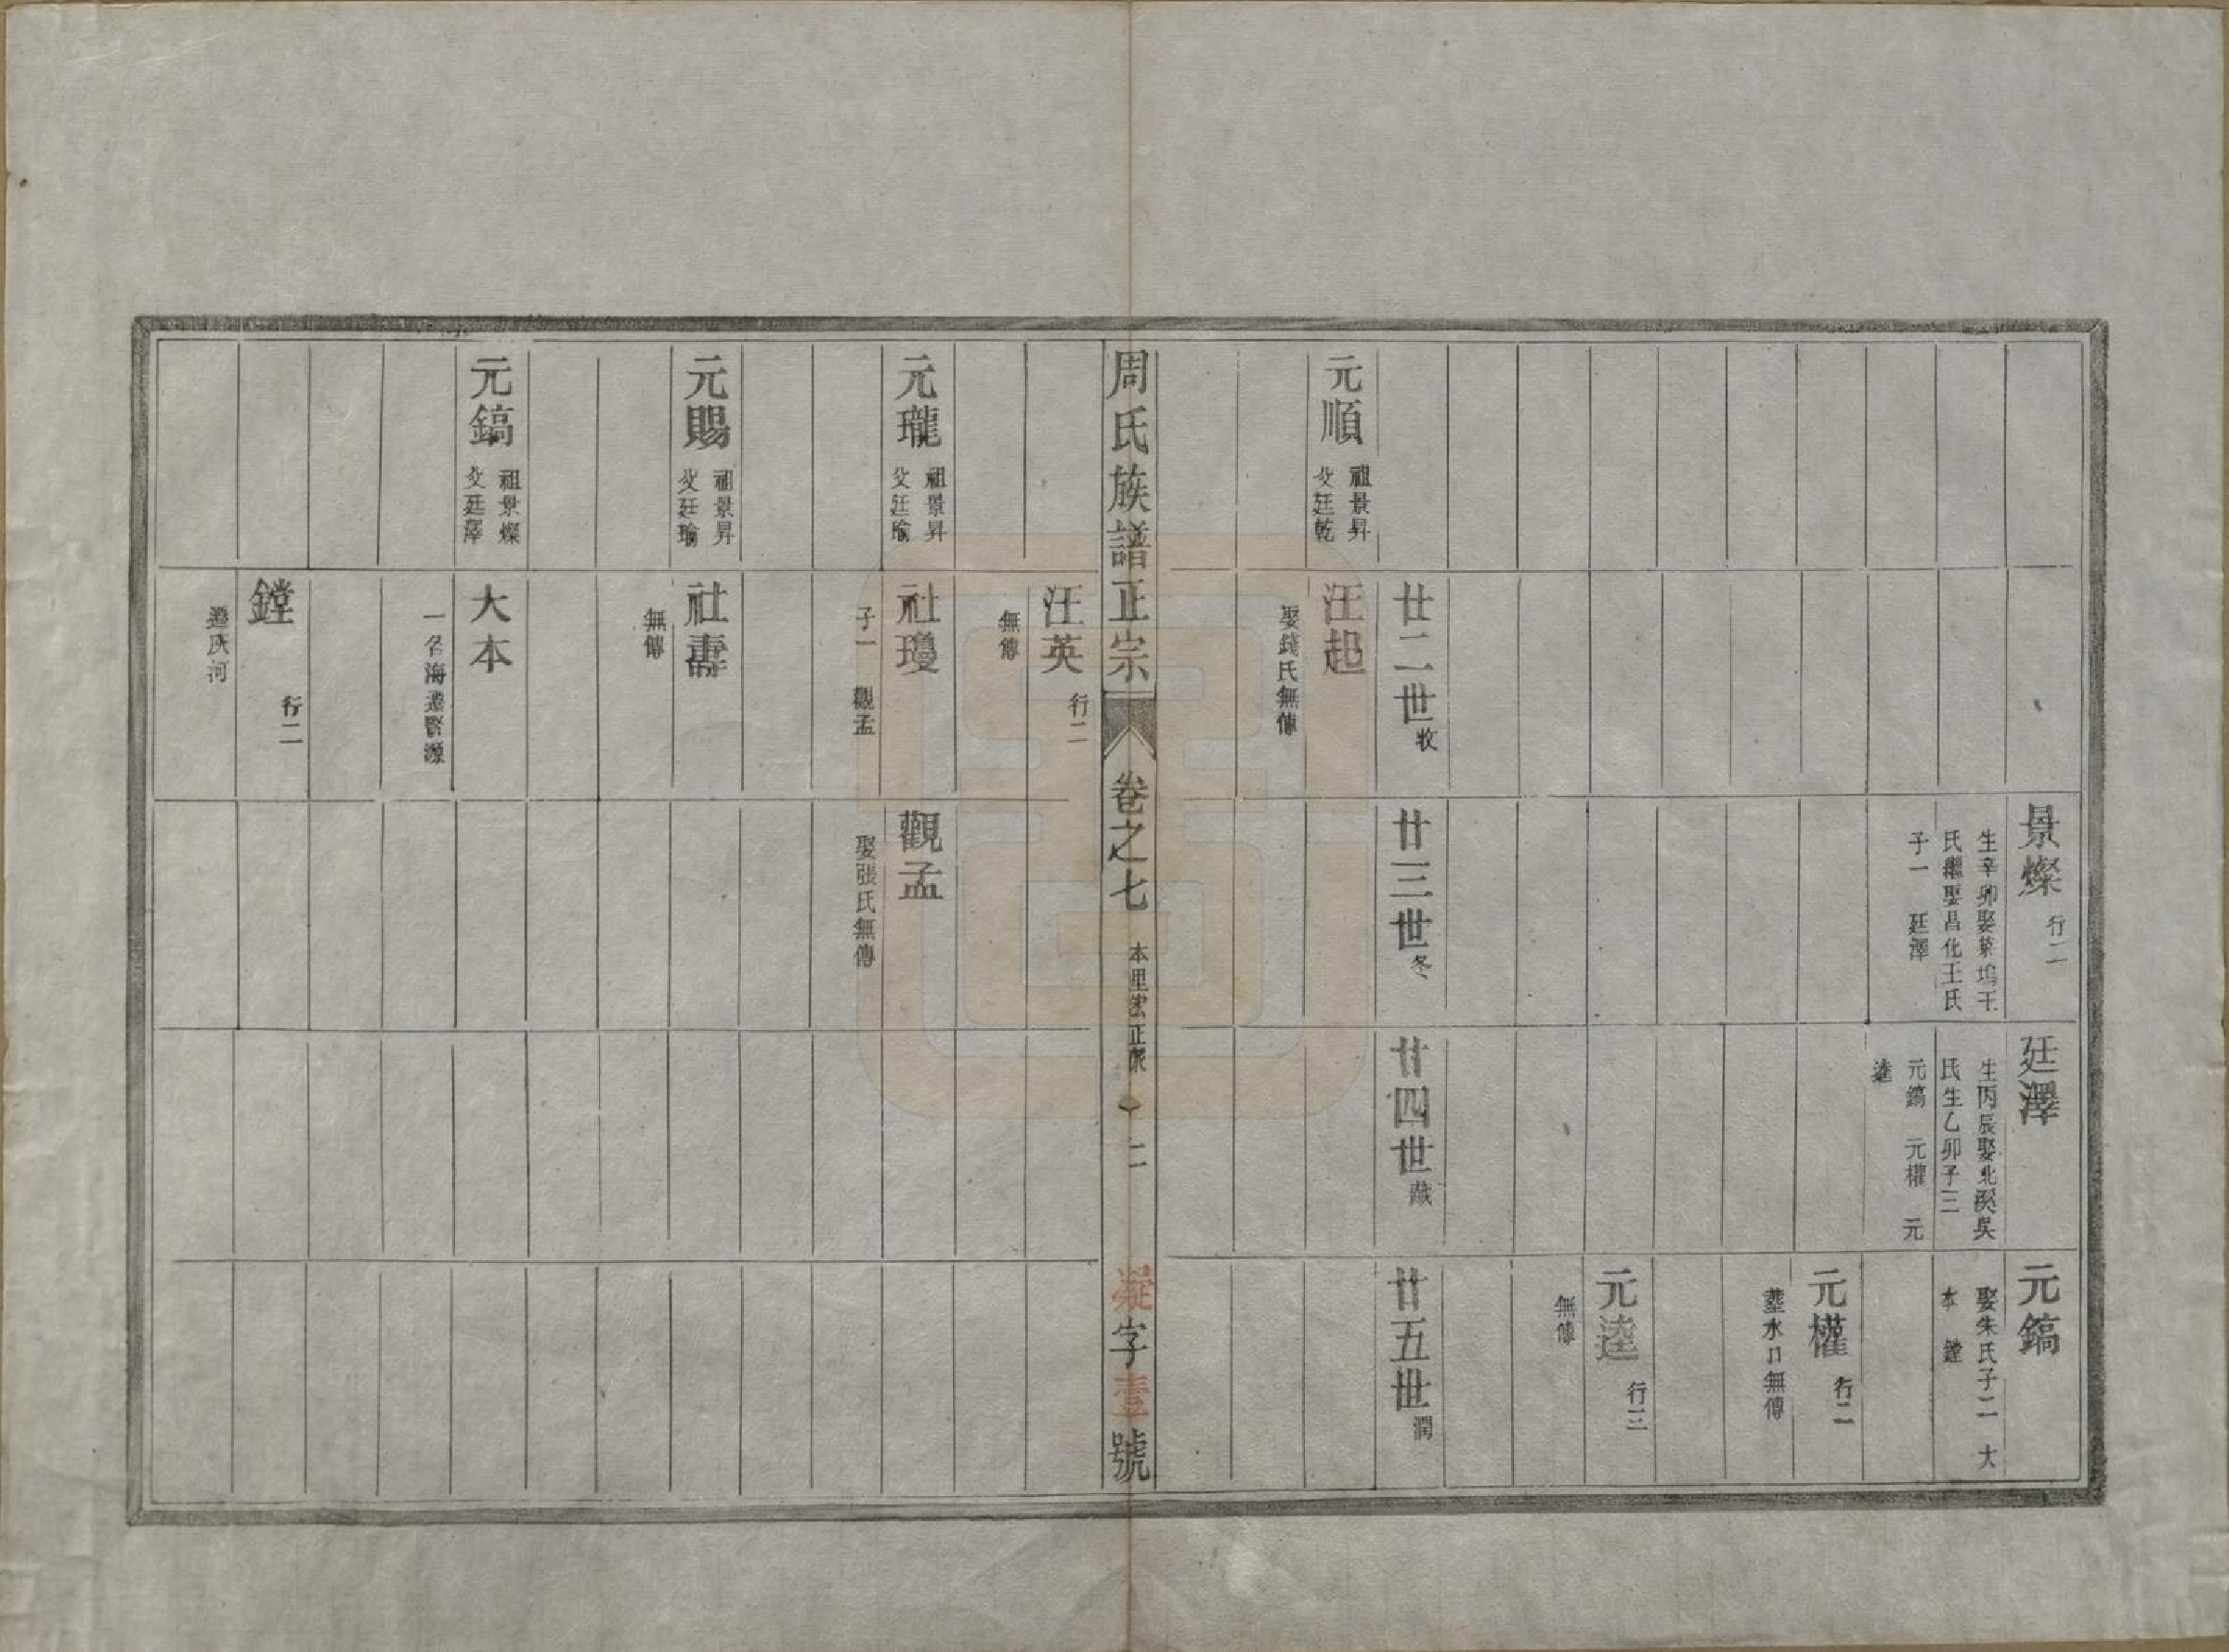 景燦 行二
生辛卯娶菜塢王
氏繼娶昌化王氏
子一 廷澤
廷澤
生丙辰娶北溪吳
氏生乙卯子三
元鎬 元權 元
逵
元鎬
娶朱氏子二 大
本 鏜
元權 行二
塟水口無傳
元逵 行三
無傳
廿二世 收
廿三世 冬
廿四世 藏
廿五世 潤
元順 祖景昇
父廷乾
汪起
娶錢氏無傳
周氏族譜正宗 卷之七 本里 正派 二 凝字壹號
汪英 行二
無傳
元瓏 祖景昇
父廷瑜
社瓊
子一 觀孟
觀孟
娶張氏無傳
元賜 祖景昇
父廷瑜
社壽
無傳
元鎬 祖景燦
父廷澤
大本
一名海遷 源
鏜 行二
遷灰河